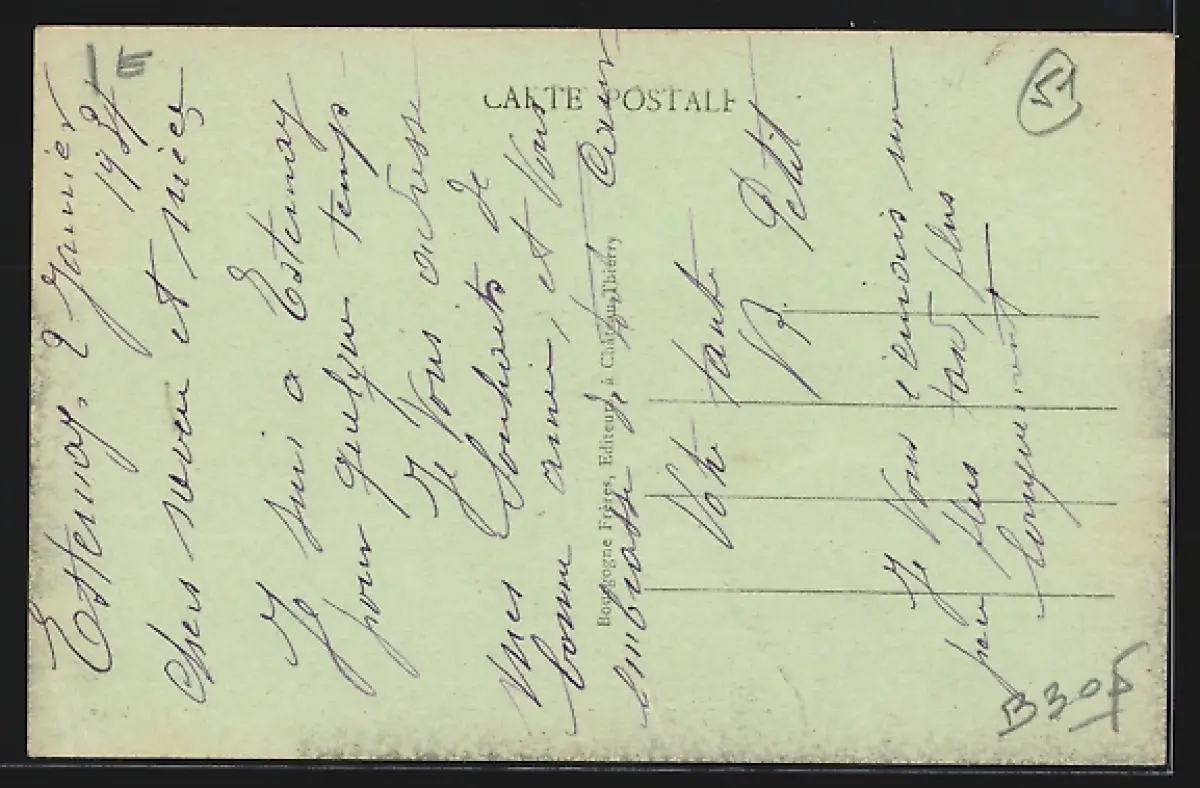 CARTE POSTALE
Bourgogne Frères, Editeurs, à Château-Thierry
51
Esternay, 2 Janvier
Chers neveu et nièce
Je suis a Esternay
pour quelque temps
Je Vous adresse
mes Souhaits de
bonne année, et Vous
embrasse de tt Cœur
Votre tante
Petit
Je Vous écrirais un
peu plus tard, plus
longuement
B305